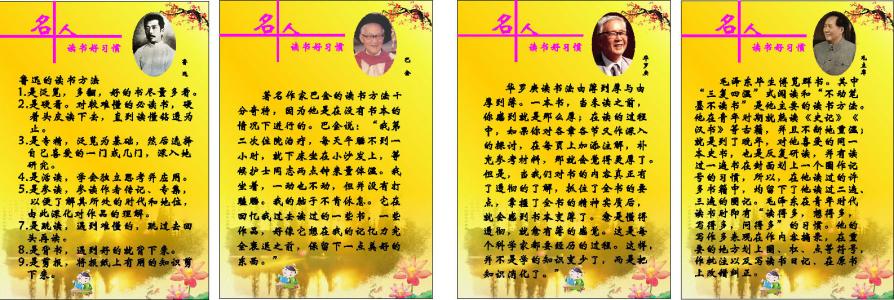 名人
读书好习惯
鲁迅
鲁迅的读书方法
1.是泛览，多翻，好的书尽量多看。
2.是硬看。对较难懂的必读书，硬
着头皮读下去，直到读懂钻透为
止。
3.是专精，泛览为基础，然后选择
自己喜爱的一门或几门，深入地
研究。
4.是活读，学会独立思考并应用。
5.是参读，参读作者传记、专集，
以便了解其所处的时代和地位，
由此深化对作品的理解。
7.是跳读，遇到难懂的，跳过去回
头再读。
8.是背书，遇到好的就背下来。
9.是剪报，将报纸上有用的知识剪
下来。
名人
读书好习惯
巴金
著名作家巴金的读书方法十
分奇特，因为他是在没有书本的
情况下进行的。巴金说：“我第
二次住院治疗，每天午睡不到一
小时，就下床坐在小沙发上，等
候护士同志两点钟来量体温。我
坐着，一动也不动，但并没有打
瞌睡。我的脑子不肯休息。它在
回忆我过去读过的一些书，一些
作品，好像它想在我的记忆力完
全衰退之前，保留下一点美好的
东西。”
名人
读书好习惯
华罗庚
华罗庚读书法由薄到厚与由
厚到薄。一本书，当未读之前，
你感到就是那么厚；在读的过程
中，如果你对各章各节又作深入
的探讨，在每页上加添注解，补
充参考材料，那就会觉得更厚了。
但是，当我们对书的内容真正有
了透彻的了解，抓住了全书的要
点，掌握了全书的精神实质后，
就会感到书本变薄了。愈是懂得
透彻，就愈有薄的感觉。这是每
个科学家都要经历的过程。这样，
并不是学的知识变少了，而是把
知识消化了。”
名人
读书好习惯
毛主席
毛泽东毕生博览群书。其中
“三复四温”式阅读和“不动笔
墨不读书”是他主要的读书方法。
他在青年对期就熟读《史记》《
汉书》等古籍，并且不断地重温；
就是到了晚年，对他喜爱的同一
本史书，也是反复研读，并有读
过一遍书在封面划上一个圈作记
号的习惯，所以，在他读过的许
多书籍中，均留下了他读过二遍、
三遍的圈记。毛泽东在青年时代
读书时即有“读得多，想得多，
写得多，问得多”的习惯。他的
写作多表现在作内容摘录，在重
要的地方划上圈、杠、点等符号，
作批注以及写读书日记、在原书
上改错纠正。